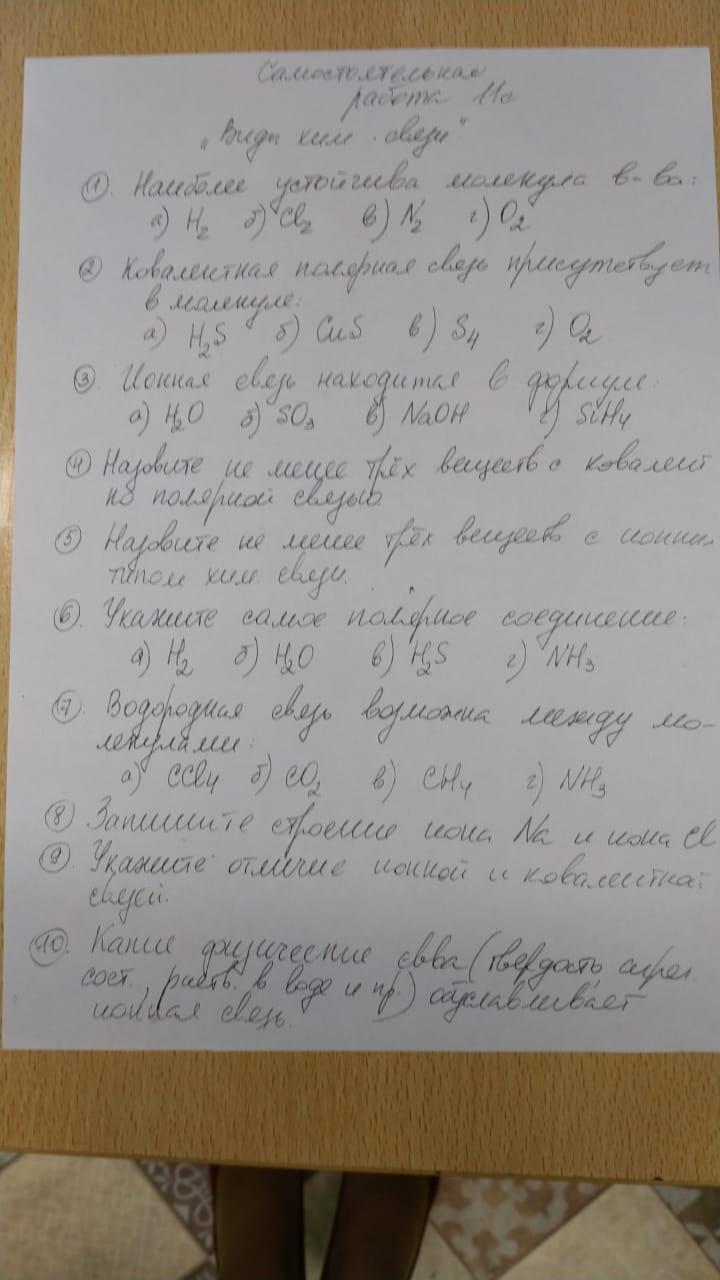 Самостоятельная
работа 11с
„Виды хим. связи"
1. Наиболее устойчива молекула в-ва:
а) H₂ б) Cl₂ в) N₂ г) O₂
2 Ковалентная полярная связь присутствует
в молекуле:
а) H₂S б) CuS в) S₄ г) O₂
3 Ионная связь находится в формуле:
а) H₂O б) SO₃ в) NaOH г) SiH₄
4 Назовите не менее трёх веществ с ковалент
но полярной связью
5 Назовите не менее трёх веществ с ионны
типом хим. связи.
6. Укажите самое полярное соединение:
а) H₂ б) H₂O в) H₂S г) NH₃
7. Водородная связь возможна между мо-
лекулами:
а) CCl₄ б) CO₂ в) CH₄ г) NH₃
8 Запишите строение иона Na и иона Cl
9. Укажите отличие ионной и ковалентной
связей.
10. Какие физические св-ва (твердость, агрег.
сост., раств. в воде и пр.) обуславливает
ионная связь.